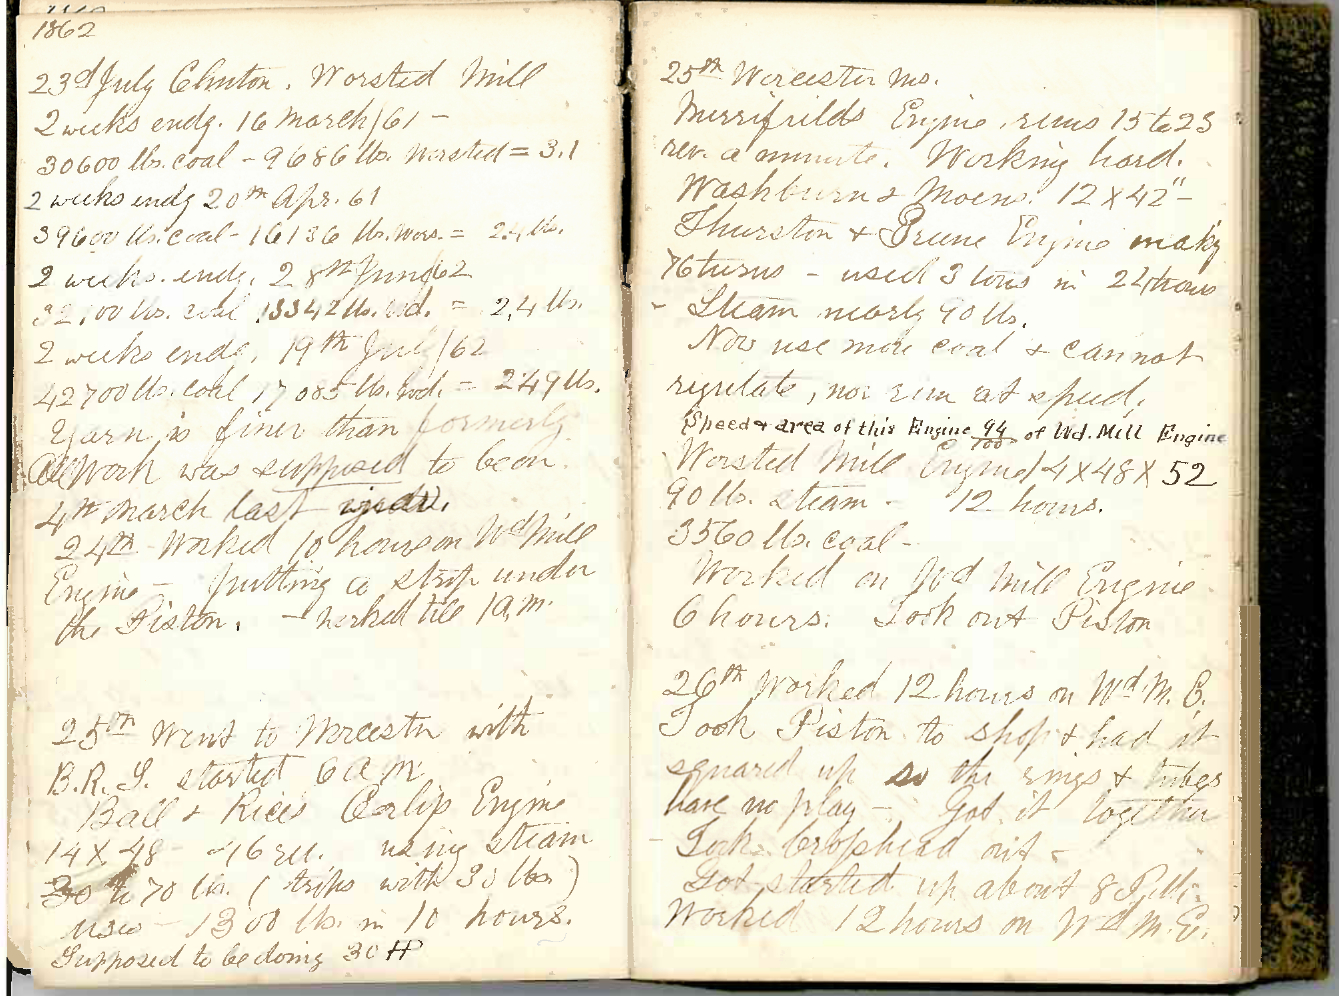 1862
23d July Clinton. Worsted Mill
2 weeks endg. 16 March/61 –
30600 lbs. coal – 9686 lbs. Worsted = 3.1
2 weeks endg 20th Apr. 61
39600 lbs. coal – 16136 lbs. Wors. = 2.4 lbs.
2 weeks. endg. 28th June/62
32100 lbs. coal 13342 lbs. Wd. = 2.4 lbs.
2 weeks endg. 19th July/62
42700 lbs. coal 17085 lbs. Wd. = 2.49 lbs.
Yarn is finer than formerly
All Work was supposed to be on
4th March last year.
24th Worked 10 hours on Wd Mill
Engine – putting a strip under
the Piston. – Worked till 1 a.m.
25th Went to Worcester with
B.R.S. started 6 a m
Ball & Rice's Corlip Engine
14 X 48 – 46 rev. using steam
30 to 70 lbs. (trips with 30 lbs)
use – 1300 lbs. in 10 hours.
Supposed to be doing 30 HP
25th Worcester Ms.
Merrifields Engine runs 15 to 25
rev. a minute. Working hard.
Washburn & Moens. 12 X 42" –
Thurston & Greene Engine makg
76 turns – used 3 tons in 24 hours
– Steam nearly 90 lbs.
Now use more coal & cannot
regulate, nor run at speed.
Speed & area of this Engine 94/100 of Wd. Mill Engine
Worsted Mill Engine 14 X 48 X 52
90 lbs. steam – 12 hours.
3560 lbs. coal –
Worked on Wd Mill Engine
6 hours. Took out Piston
26th Worked 12 hours on Wd. M. E.
Took Piston to shop & had it
squared up so the rings & tubes
have no play – Got it together
– Took Crosshead out –
Got started up about 8
Worked 12 hours on Wd M. E.